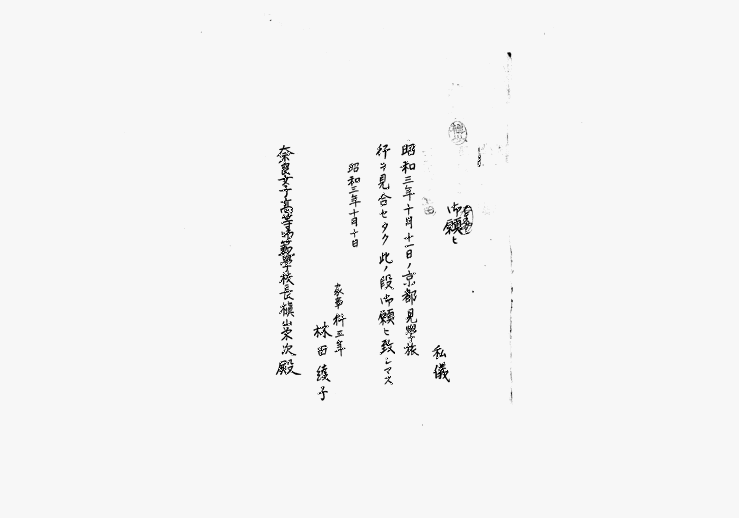 御願ヒ
私儀
昭和三年十月十一日ノ京都見學旅
行ヲ見合セタク此ノ段御願ヒ致シマス
昭和三年十月十日
家事科三年
林田綾子
奈良女子高等師範學校長槇山榮次殿